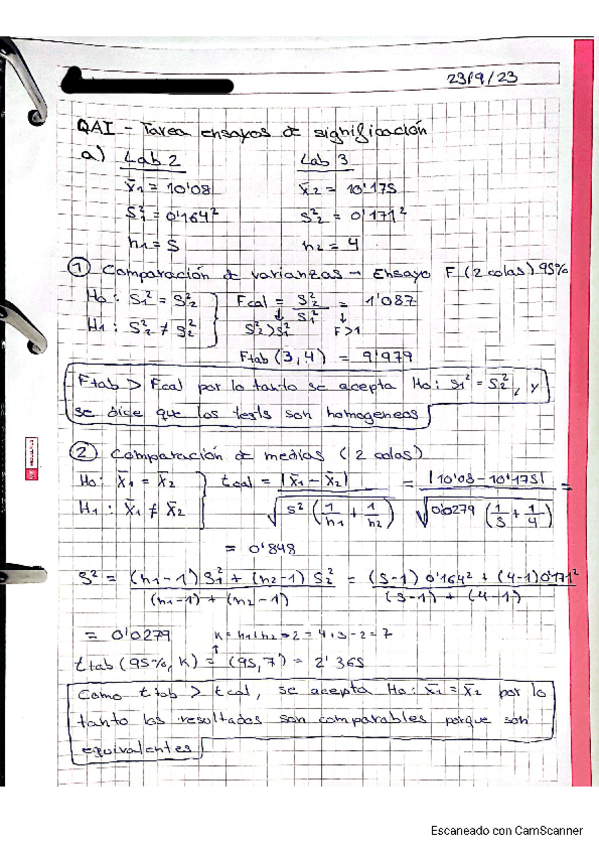 23/9/23
QAI - Tarea ensayos de significación
a) Lab 2 Lab 3
x̄1 = 10'08 x̄2 = 10'175
S²1 = 0'164² S²2 = 0'171²
n1 = 5 n2 = 4
① Comparación de varianzas → Ensayo F (2 colas) 95%
H0: S1² = S²2 Fcal = S²2 / S1² = 1'087
H1: S²1 ≠ S²2 S²2 > S1² F>1
Ftab (3,4) = 9'979
Ftab > Fcal por lo tanto se acepta H0: S1² = S²2, y
se dice que los tests son homogeneos
② Comparación de medias (2 colas)
H0: x̄1 = x̄2 tcal = |x̄1 - x̄2| / √(S² (1/n1 + 1/n2)) = |10'08 - 10'175| / √(0'0279 (1/5 + 1/4)) =
H1: x̄1 ≠ x̄2
= 0'848
S² = (n1-1) S²1 + (n2-1) S²2 / (n1-1) + (n2-1) = (5-1) 0'164² + (4-1) 0'171² / (5-1) + (4-1)
= 0'0279 K = n1+n2-2 = 4+5-2 = 7
ttab (95%, K) = (95,7) = 2'365
Como ttab > tcal, se acepta H0: x̄1 = x̄2 por lo
tanto los resultados son comparables porque son
equivalentes
Escaneado con CamScanner